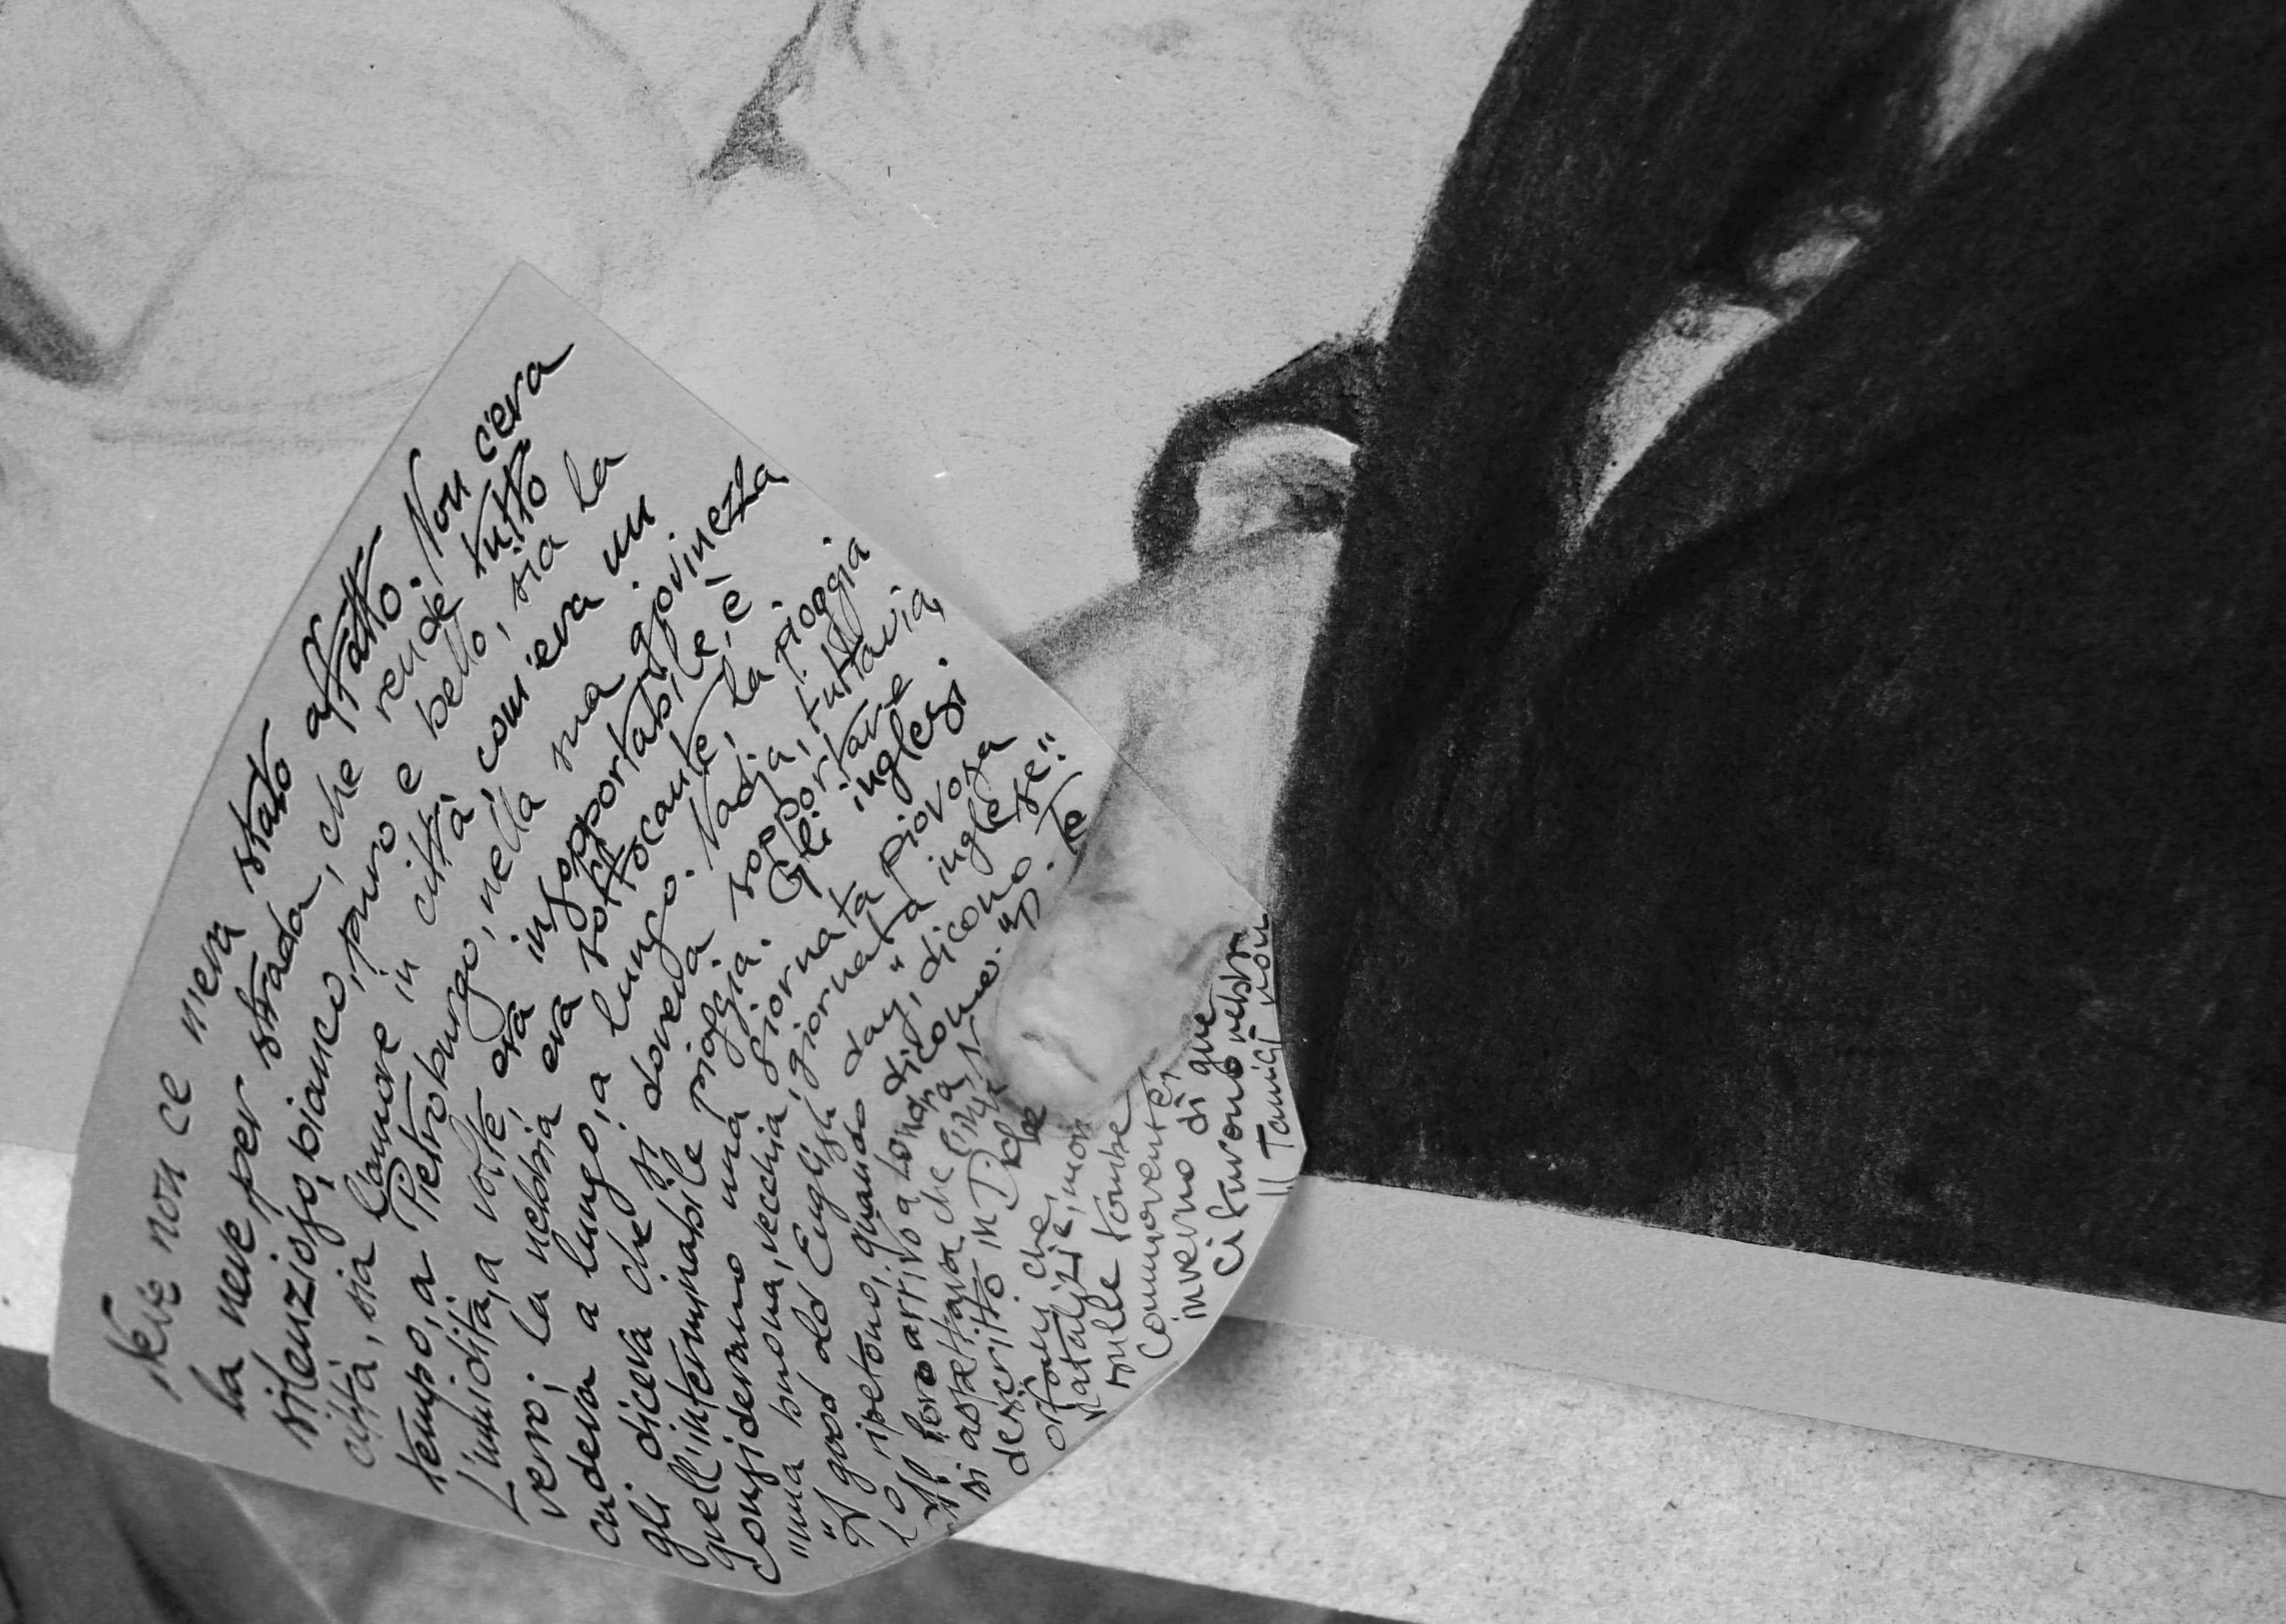 Neve non ce n'era stato affatto. Non c'era
la neve per strada, che rende tutto
silenzioso, bianco, puro e bello, sia la
città, sia l'amore in città, com'era un
tempo, a Pietroburgo, nella sua giovinezza
L'umidità, a volte, era insopportabile, è
vero; la nebbia era soffocante, la pioggia
cadeva a lungo, a lungo. Nadja, tuttavia,
gli diceva che si doveva sopportare
quell'interminabile pioggia. Gli inglesi
considerano una giornata piovosa
"una buona, vecchia, giornata inglese".
"A good old English day", dicono. Te
lo ripetono, quando
Il loro arrivo a Londra
si aspettava che
descritto in
orfani che,
natalizie, non
sulle tombe
commovente,
inverno di que
ci furono nebbia
Il Tamigi non